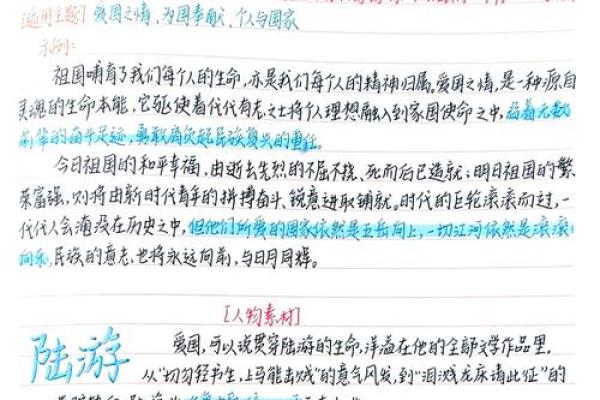 [适用主题] 爱国之情、为国奉献、个人与国家
示例:
祖国哺育了我们每个人的生命,亦是我们每个人的精神归属。爱国之情,是一种源自
灵魂的生命本能,它驱使着代代有志之士将个人理想融入到家国使命之中,沿着无数
前辈的奋斗足迹,勇敢肩负起民族复兴的重任。
今日祖国的和平幸福,由逝去先烈的不屈不挠、死而后已造就;明日祖国的繁
荣富强,则将由新时代青年的拼搏奋斗、锐意进取铺就。时代的巨轮滚滚而过,一
代代人会淹没在历史之中,但他们所爱的国家依然是五岳向上,一切江河依然是滚滚
向东,民族的意志,也将永远向前,与日月同辉。
[人物素材]
陆游
爱国,可以说贯穿陆游的生命,洋溢在他的全部文学作品里。
从“切勿轻书生,上马能击贼”的意气风发,到“泪溅龙床请北征”的